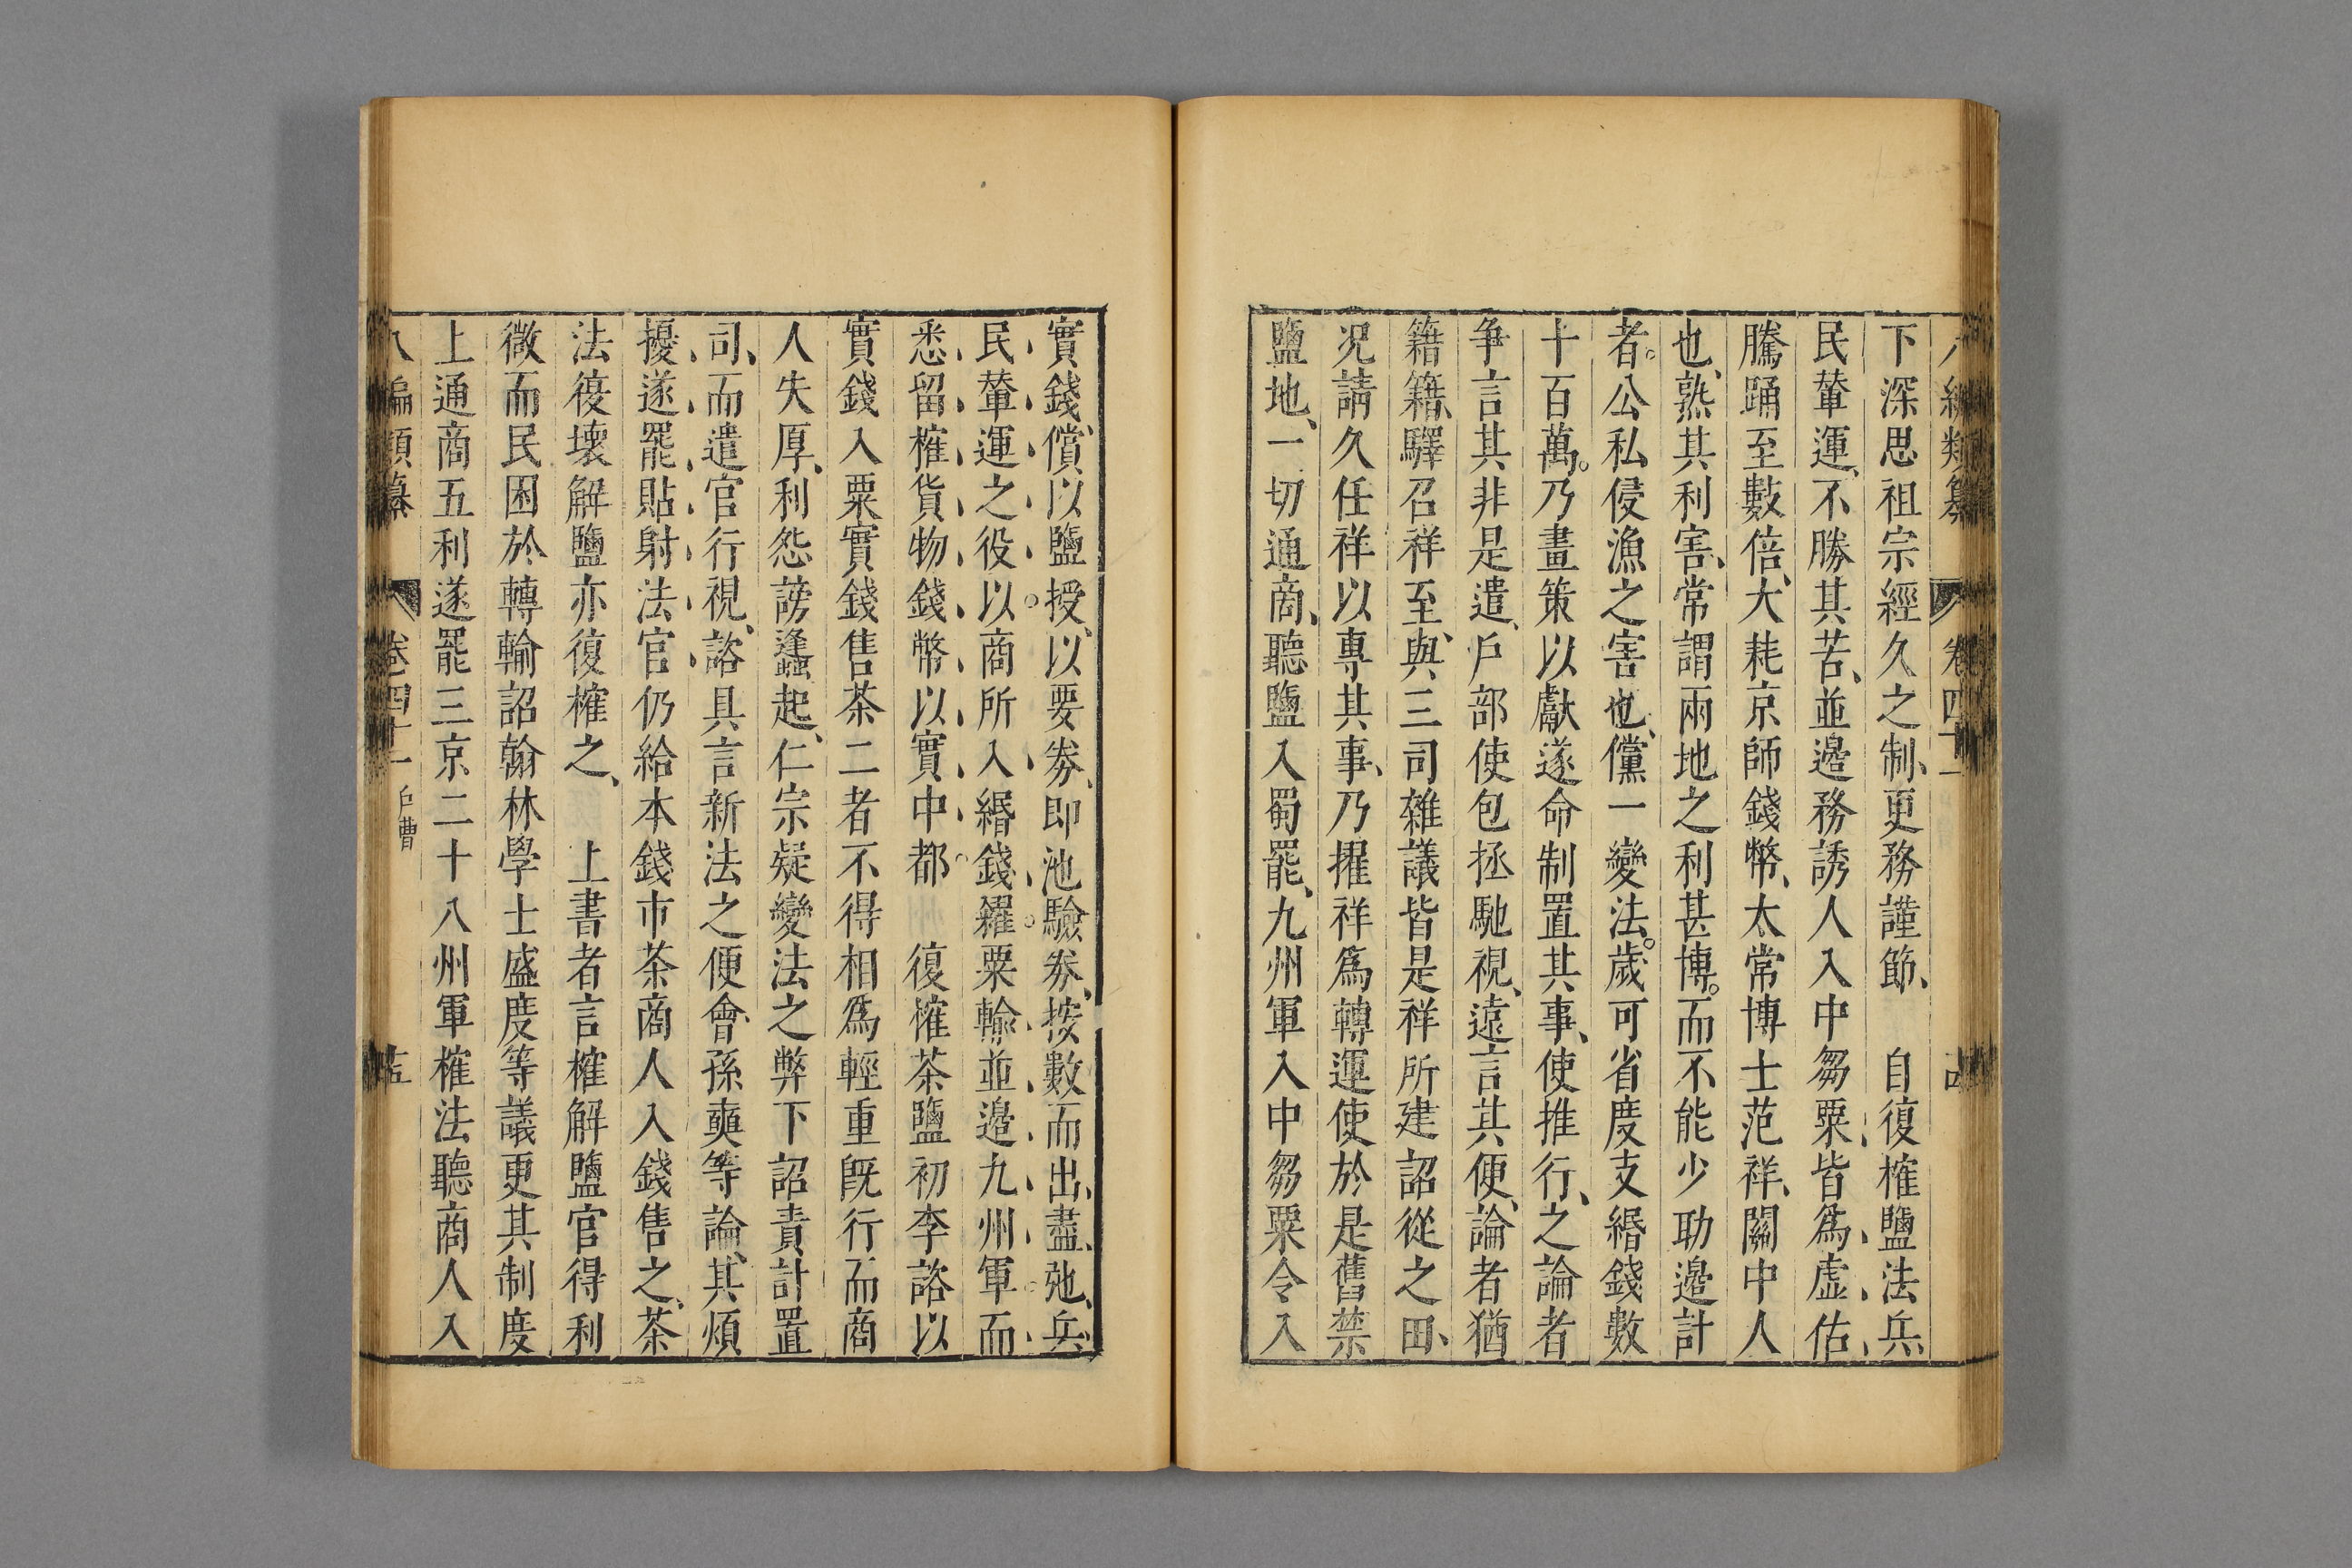 下深思祖宗經久之制、更務謹節、　自復榷鹽法、兵
民輦運、不勝其苦、並邊務誘人入中芻粟、皆爲虛估、
騰踊至數倍、大耗京師錢幣、太常博士范祥、關中人
也、熟其利害、常謂兩地之利甚博。而不能少助邊計
者。公私侵漁之害也、儻一變法。歲可省度支緡錢數
十百萬。乃畫策以獻遂命制置其事、使推行、之論者
争言其非是遣、戶部使包拯馳視、遠言其便、論者猶
籍籍、驛召祥至、與三司雜議皆是祥所建詔從之田、
况請久任祥以專其事、乃擢祥爲轉運使於是舊禁
鹽地、一切通商、聽鹽入蜀罷、九州軍入中芻粟令入
實錢、償以鹽授、以要劵、即池驗劵、按數而出、盡、弛、兵、
民輦運之役。以商所入緡錢。糴粟輸並邉九州軍而
悉留榷貨物錢幣以實中都。　復榷茶鹽初李諮以
實錢入粟實錢售茶二者不得相爲輕重旣行而商
人失厚、利怨謗蠭起、仁宗疑變法之弊下詔責計置
司、而遣官行視、諮具言新法之便會、孫奭等論、其煩
擾、遂罷貼射法官仍給本錢市茶商人入錢售之、茶
法復壞解鹽亦復榷之、　上書者言榷解鹽官得利
微而民困於轉輸詔翰林學士盛度等議更其制度
上通商五利遂罷三京二十八州軍榷法聽商人入
八編類纂　卷四十一　戶曹